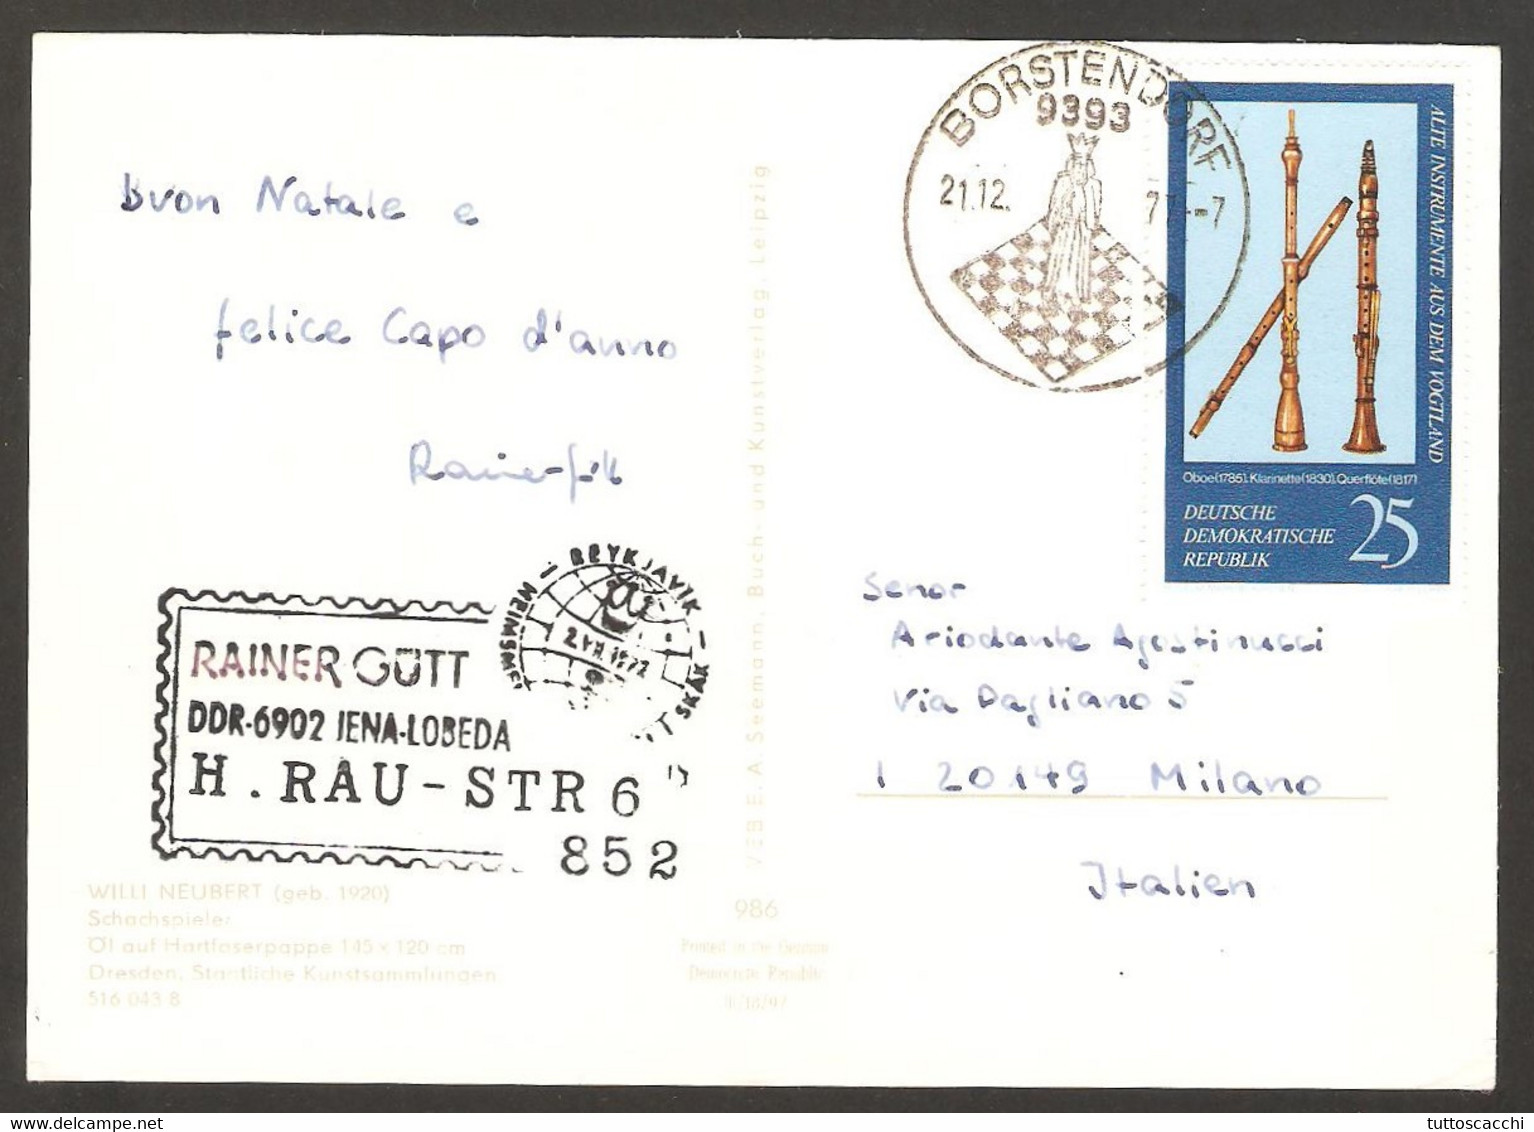 BORSTENDORF
9393
21.12.
-7
ALTE INSTRUMENTE AUS DEM VOGTLAND
Oboe(1785), Klarinette(1830), Querflöte(1817)
DEUTSCHE
DEMOKRATISCHE
REPUBLIK
25
buon Natale e
felice Capo d'anno
REYKJAVIK
SKÁK
RAINER GÜTT
DDR-6902 JENA-LOBEDA
H. RAU-STR 6
852
WILLI NEUBERT (geb. 1920)
Schachspieler
Öl auf Hartfaserpappe 145 x 120 cm
Dresden, Staatliche Kunstsammlungen
516 043 8
VEB E. A. Seemann, Buch- und Kunstverlag, Leipzig
986
Printed in the German
Democratic Republic
Senor
Ariodante Agostinucci
Via Pagliano 5
I 20149 Milano
Italien
tuttoscacchi